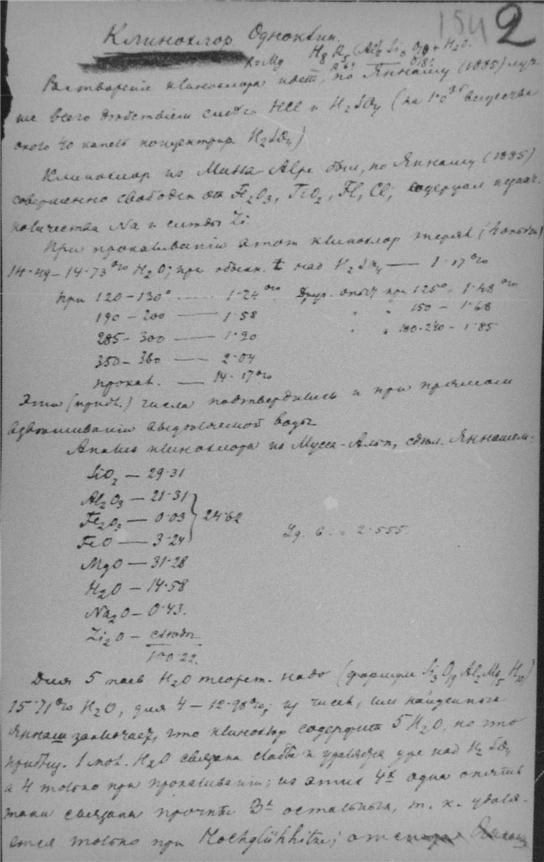 154 2
Клинохлор Одноклин.
R=Mg H₈ R₅ (Al₂ Si₃ O₁₈
Растворение клинохлора идет, по Яннашу (1885) луч-
ше всего действием смеси HCl и H₂SO₄ (на 1·0 вещества
около 40 капель концентрир. H₂SO₄)
Клинохлор из Mussa-Alpe был, по Яннашу (1885)
совершенно свободен от Fe₂O₃, TiO₂, Fl, Cl; содержал
количества Na и следы Li
При прокаливании этот клинохлор терял
14·49–14·73% H₂O; при обыкн. t над H₂SO₄ — 1·17%
при 120–130° — 1·24% Друг. опыт при 125° – 1·48%
190 – 200 — 1·58 " " 150 – 1·68
285– 300 — 1·90 " " 180-240 – 1·85
350– 360 — 2·04
прокал. — 14·17%
Эти числа подтвердились и при прямом
взвешивании выделяемой воды
Анализ клинохлора из Мусса-Альп, сдѣл. Яннашем.
SiO₂ — 29·31
Al₂O₃ — 21·31
Fe₂O₃ — 0·03 } 24·62
FeO — 3·24 2·555.
MgO — 31·28
H₂O – 14·58
Na₂O – 0·43.
Li₂O – следы
100·22.
Для 5 паев H₂O теорет. надо (формула
15·71% H₂O, для 4 – 12·98%; из чисел, им найденных
Яннаш заключает, что клинохлор содержит 5H₂O, но что
1 мол. H₂O связана слабо и удаляется уже над H₂SO₄
а 4 только при прокаливании; из этих 4х одна опять
таки связана прочнее 3х остальных, т. к. удаля-
ется только при Hochglühhitze;